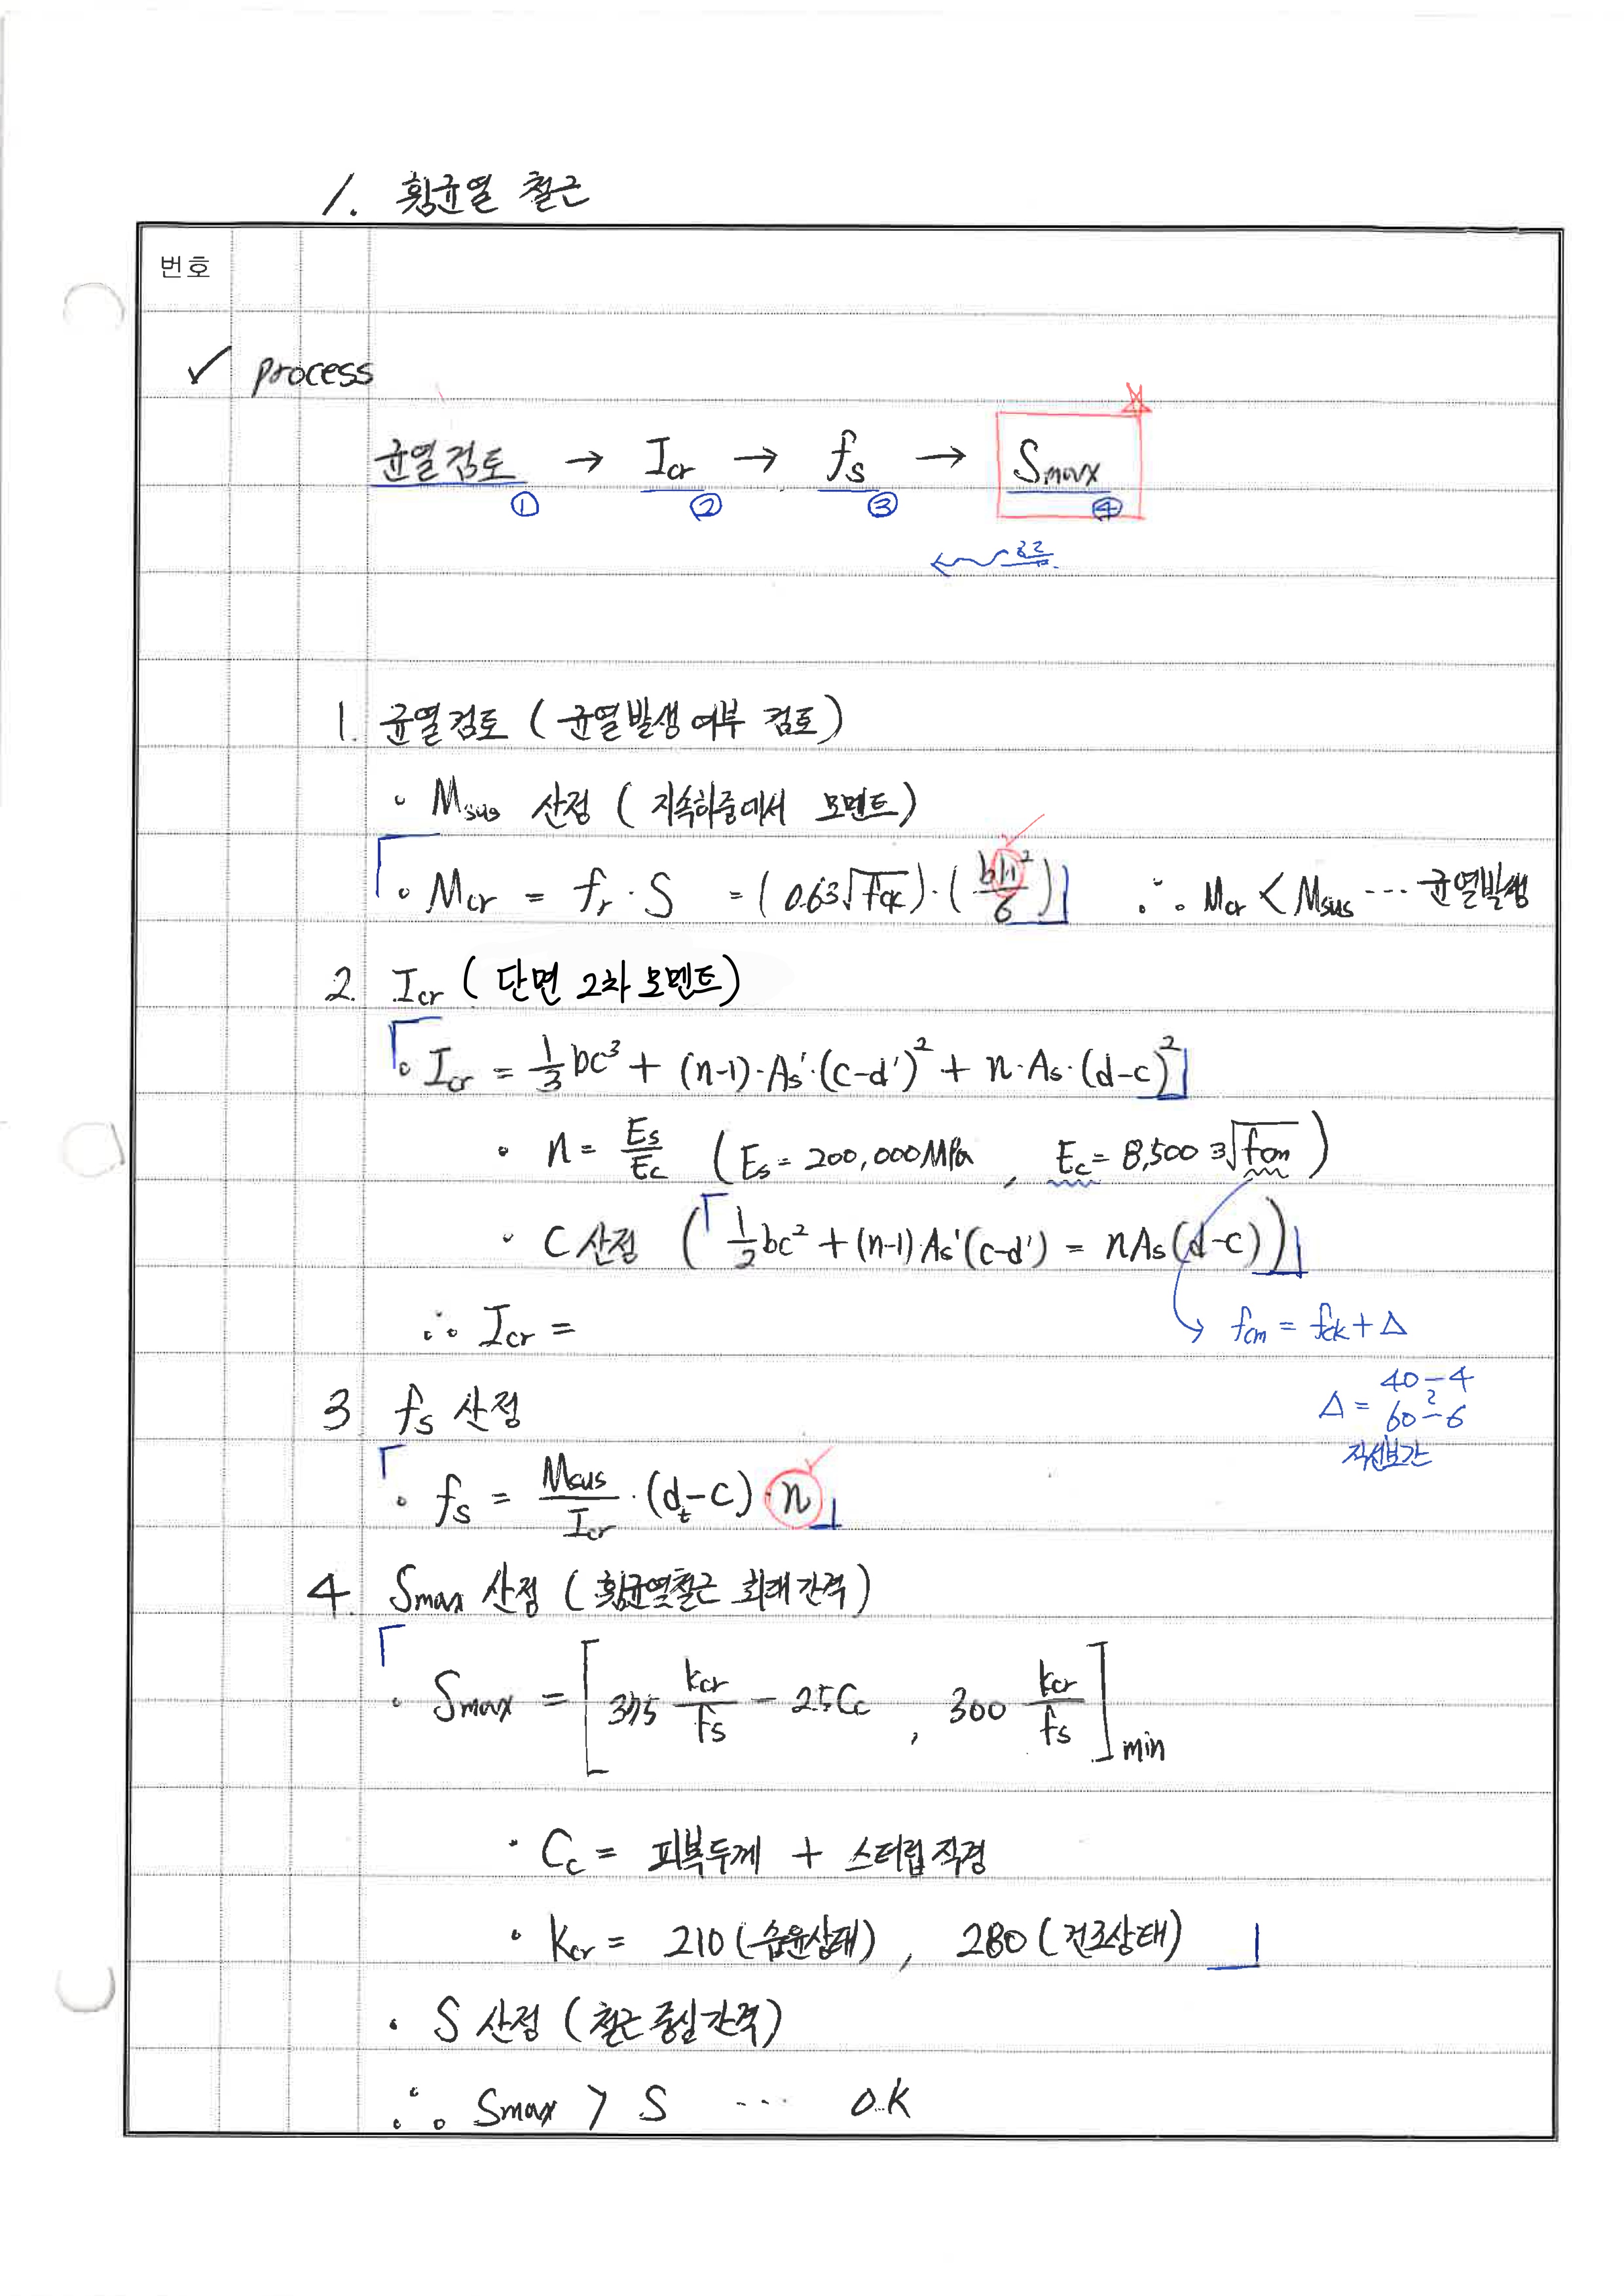 1. 휨균열 철근
번호
✓ process
균열검토 → Icr → fs → Smax
① ② ③ ④
1. 균열검토 (균열발생 여부 검토)
• Msus 산정 (지속하중에서 모멘트)
• Mcr = fr · S = (0.63√fck) · (bh²/6) ∴ Mcr < Msus ··· 균열발생
2. Icr (단면 2차 모멘트)
• Icr = 1/3 bc³ + (n-1)·As'·(c-d')² + n·As·(d-c)²
• n = Es/Ec (Es = 200,000MPa , Ec = 8,500 ³√fcm)
• C 산정 (1/2 bc² + (n-1)·As'(c-d') = nAs(d-c))
∴ Icr =
fcm = fck + Δ
40 - 4
Δ = ?
60 - 6
직선보간
3 fs 산정
• fs = Msus/Icr · (dt-c) · n
4. Smax 산정 (휨균열철근 최대간격)
• Smax = [375 kcr/fs - 2.5Cc , 300 kcr/fs] min
• Cc = 피복두께 + 스터럽직경
• kcr = 210 (습윤상태) , 280 (건조상태)
• S 산정 (철근 중심간격)
∴ Smax > S ··· O.K